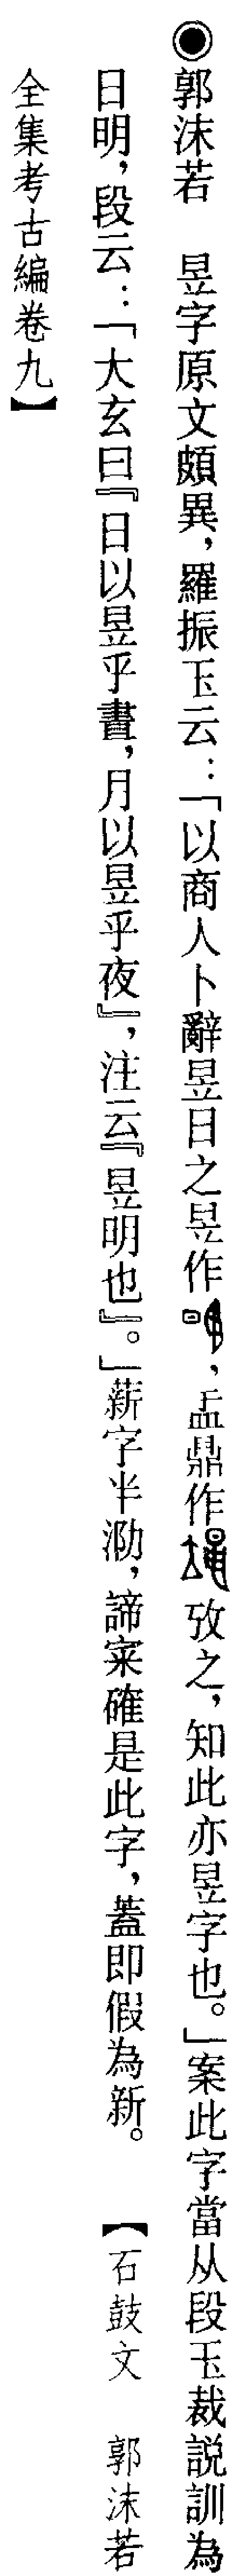 ◉郭沫若　昱字原文頗異，羅振玉云：「以商人卜辭昱日之昱作，盂鼎作攷之，知此亦昱字也。」案此字當从段玉裁説訓為
日明，段云：「大玄曰『日以昱乎晝，月以昱乎夜』，注云『昱明也』。」薪字半泐，諦宷確是此字，蓋即假為新。　【石鼓文　郭沫若
全集考古編卷九】